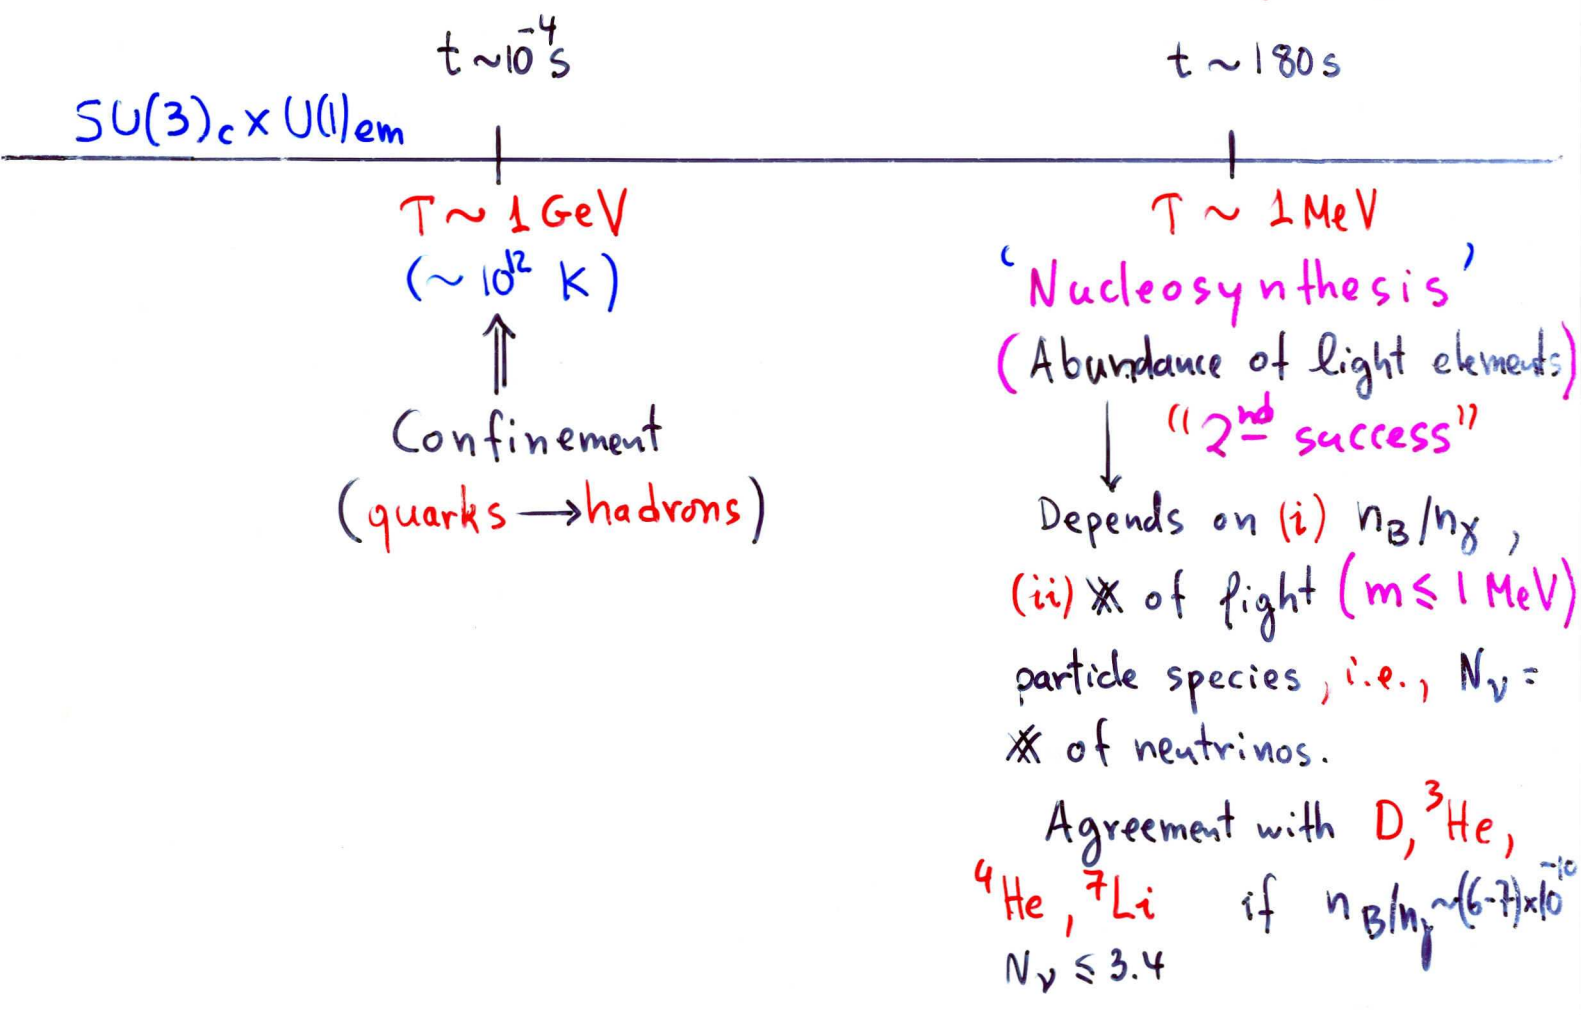 t ~ 10⁻⁴ s
t ~ 180 s
SU(3)c x U(1)em
T ~ 1 GeV
(~ 10¹² K)
Confinement
(quarks → hadrons)
T ~ 1 MeV
'Nucleosynthesis'
(Abundance of light elements)
"2nd success"
Depends on (i) nB/nγ,
(ii) # of light (m ≤ 1 MeV)
particle species, i.e., Nν =
# of neutrinos.
Agreement with D, ³He,
⁴He, ⁷Li if nB/nγ ~ (6-7)x10⁻¹⁰
Nν ≤ 3.4